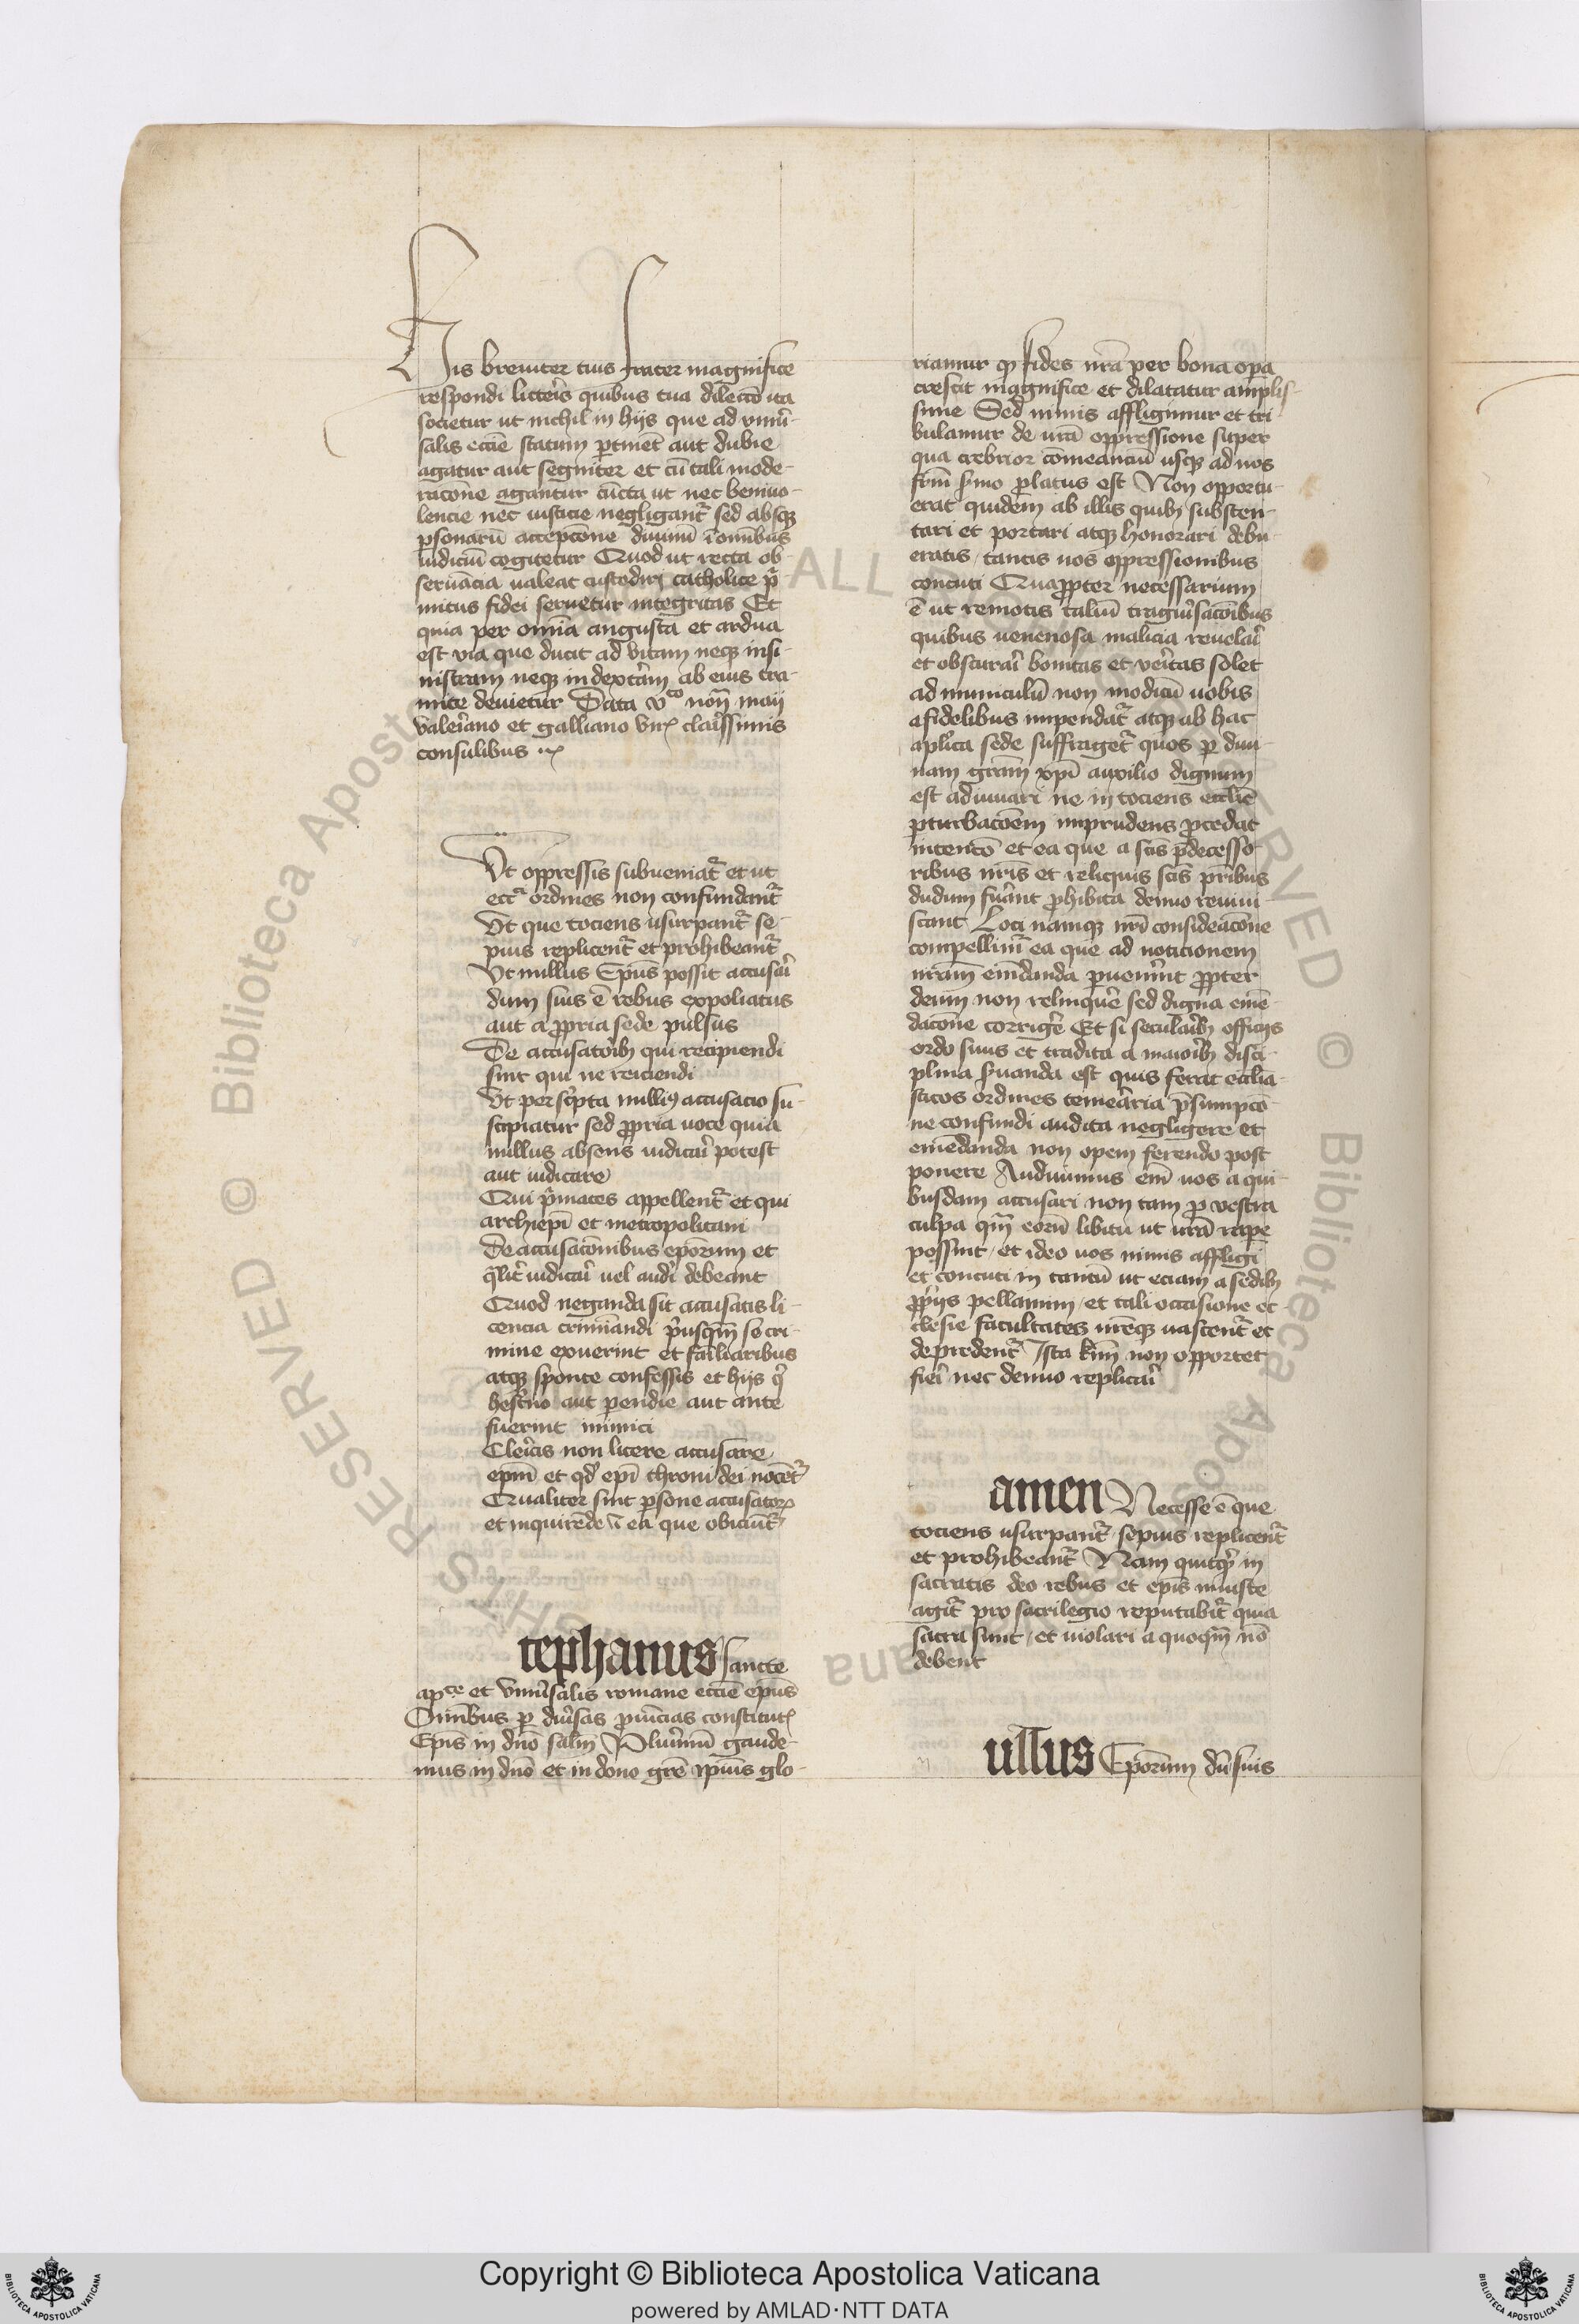 His breuiter tuis frater magnifice
respondi litteris quibus tua dilectō ita
societur ut nichil in hijs que ad vniuer-
salis eccīe statum ꝑtinet aut dubie
agatur aut segniter et cū tali mode-
racōne agantur cūcta ut nec beniuo-
lencie nec iusticie negligant᷑ sed absqꝫ
ꝑsonarū accepcōne diuinū ī omībus
iudiciū cogitetur Quod ut recta ob-
seruācia ualeat custodiri catholice
mitus fidei seruetur integritas Et
quia per omīa angusta et ardua
est via que ducit ad vitam neqꝫ insi-
nistram neqꝫ in dexterām ab eius tra-
mite deuietur Data v non maij
valeriano et galliano clarissimis
consulibus
Vt oppressis subueniat᷑ et ut
ordines non confundant᷑
Vt que tociens usurpant᷑ se-
pius replicent᷑ et prohibeant᷑
Vt nullus Epūs possit accusari
dum suis ē rebus expoliatus
aut a ꝓpria sede pulsus
De accusatoribꝫ qui recipiendi
sint qui ne reiciendi
Vt per scripta nullius accusacio su-
scipiatur sed ꝓpria uoce quia
nullus absens iudicari potest
aut iudicare
Qui primates appellent᷑ et qui
archiepī et metropolitani
De accusacōnibus epōrum et
qualiter iudicari uel audiri debeant
Quod neganda sit accusatis li-
cencia criminandi priusquam se cri-
mine exuerint et familiaribus
atqꝫ sponte confessis et hijs qui
hesterno aut ꝑendie aut ante
fuerint inimici
Clericis non licere accusare
epm̄ et qd epī throni dei uocēt᷑
Qualiter sint ꝑsone accusatorꝝ
et inquirēde ī ea que obiciūt᷑
tephanus sancte
et vniuersalis romane eccīe epūs
Omībus ꝑ diuersas ꝓuīcias constitutis
Epīs in dnō salm̄ Plurimū gaude-
mus in dnō et in dono grē ipsius glo-
riamur ꝙ fides nrā per bona opa
crescit magnifice et dilatatur amplis-
sime Sed nimis affligimur et tri-
bulamur de urā oppressione super
qua crebrior cōmeanciū usqꝫ ad nos
frm̄ sermo ꝑlatus est Non opportu-
erat quidem ab illis quibꝫ susten-
tari et portari atqꝫ honorari debu-
eratis / tantis uos oppressionibus
concuti Quaꝓpter necessarium
ē ut remotis taliū tragiuersacōibus
quibus uenenosa malicia reuelari
et obscurari bonitas et veritas solet
ad municulū non modicū uobis
a fidelibus impendat᷑ atqꝫ ab hac
aplīca sede suffraget᷑ quos ꝑ diui-
nam grām xpī auxilio dignum
est adiuuari ne in tociens eccliē
ꝑturbacōem imprudens ꝓcedat
intencō et ea que a scīs p̄decesso
ribus nrīs et reliquis scīs pribus
dudum fuerant ꝓhibita denuo reuiui-
scant Loci namqꝫ nrī consideracōne
compellimur ea que ad noticionem
nrām emēdanda ꝑuenerint ꝓpter
deum non relinquere sed digna emē-
dacōne corrigere Et si secularibꝫ officijs
ordo suus et tradita a maioribꝫ disci-
plina seruanda est quis ferat ecclia-
sticos ordines temeraria p̄sumpcō-
ne confundi audita negligere et
emēdanda non opem ferendo post
ponere Audiuimus em̄ uos a qui-
busdam accusari non tam ꝓ vestra
culpa qm̄ eorū libitu ut urā rape
possint / et ideo uos nimis affligi
et concuti in tantū ut eciam a sedibꝫ
ꝓprijs pellamini / et tali occasione ec-
clesie facultates ureqꝫ uastent᷑ et
depredent᷑ Ista non opportet
fieri nec denuo replicari
amen Necesse ē que
tociens usurpant᷑ sepius replicent᷑
et prohibeant᷑ Nam quitqͥd in
sacratis deo rebus et epīs iniuste
agit᷑ pro sacrilegio reputabit᷑ quia
sacra sunt / et uiolari a quoqm̄ nō
debent
ullus Epōrum dū suis
Copyright © Biblioteca Apostolica Vaticana
powered by AMLAD·NTT DATA